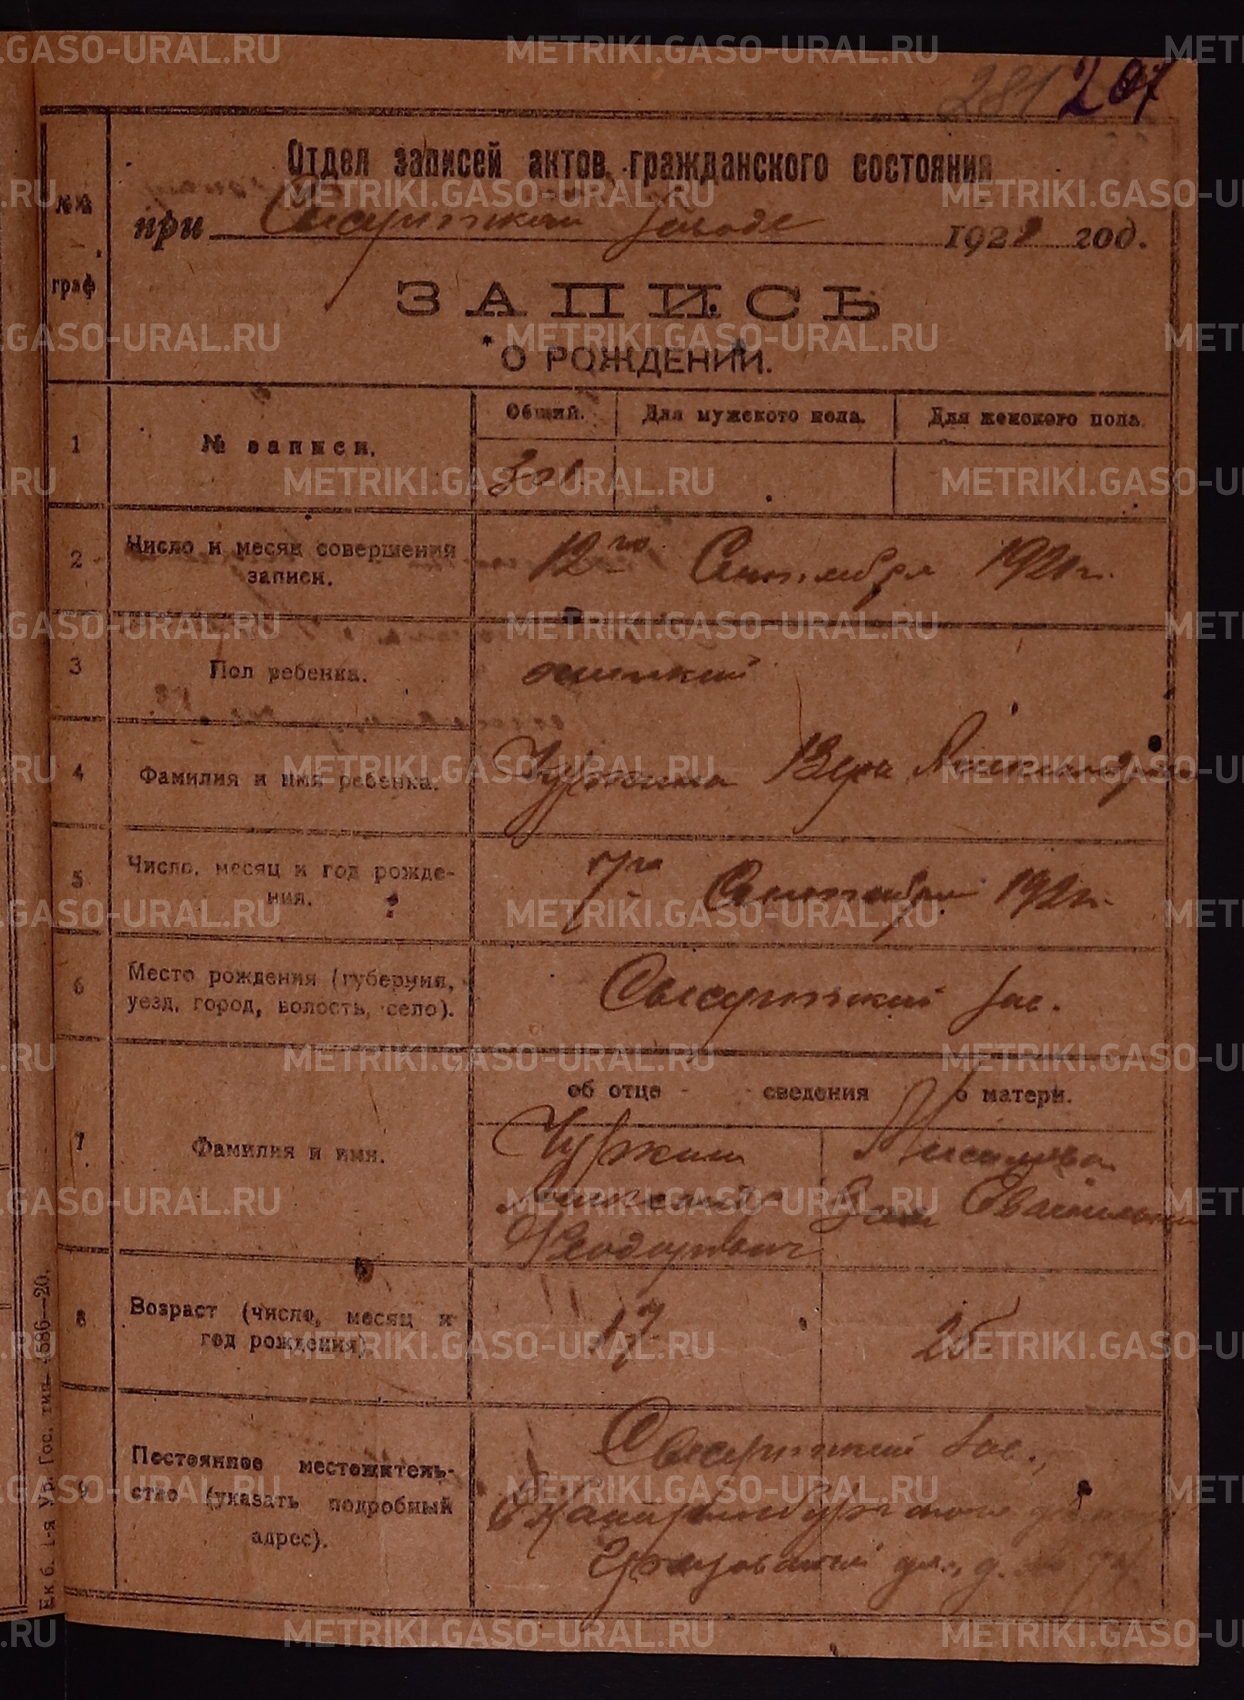 281 207
Отдел записей актов гражданского состояния
№№ граф
при Сысертском заводе 1921 год.
ЗАПИСЬ
О РОЖДЕНИИ.
1 № записи. Общий. Для мужского пола. Для женского пола.
301
2 Число и месяц совершения записи. 12го Сентября 1921 г.
3 Пол ребенка. женский
4 Фамилия и имя ребенка. Чуркина Вера
5 Число, месяц и год рождения. 7го Сентября 1921 г.
6 Место рождения (губерния, уезд, город, волость, село). Сысертский зав.
об отце сведения о матери.
7 Фамилия и имя.
Чуркин
Феодорович
8 Возраст (число, месяц и год рождения)
9 Постоянное местожительство (указать подробный адрес).
Сысертский зав.,
Екатеринбургского
ул., д. №
Ек б. 1-я Ур. Гос. тип. 4586—20.
METRIKI.GASO-URAL.RU